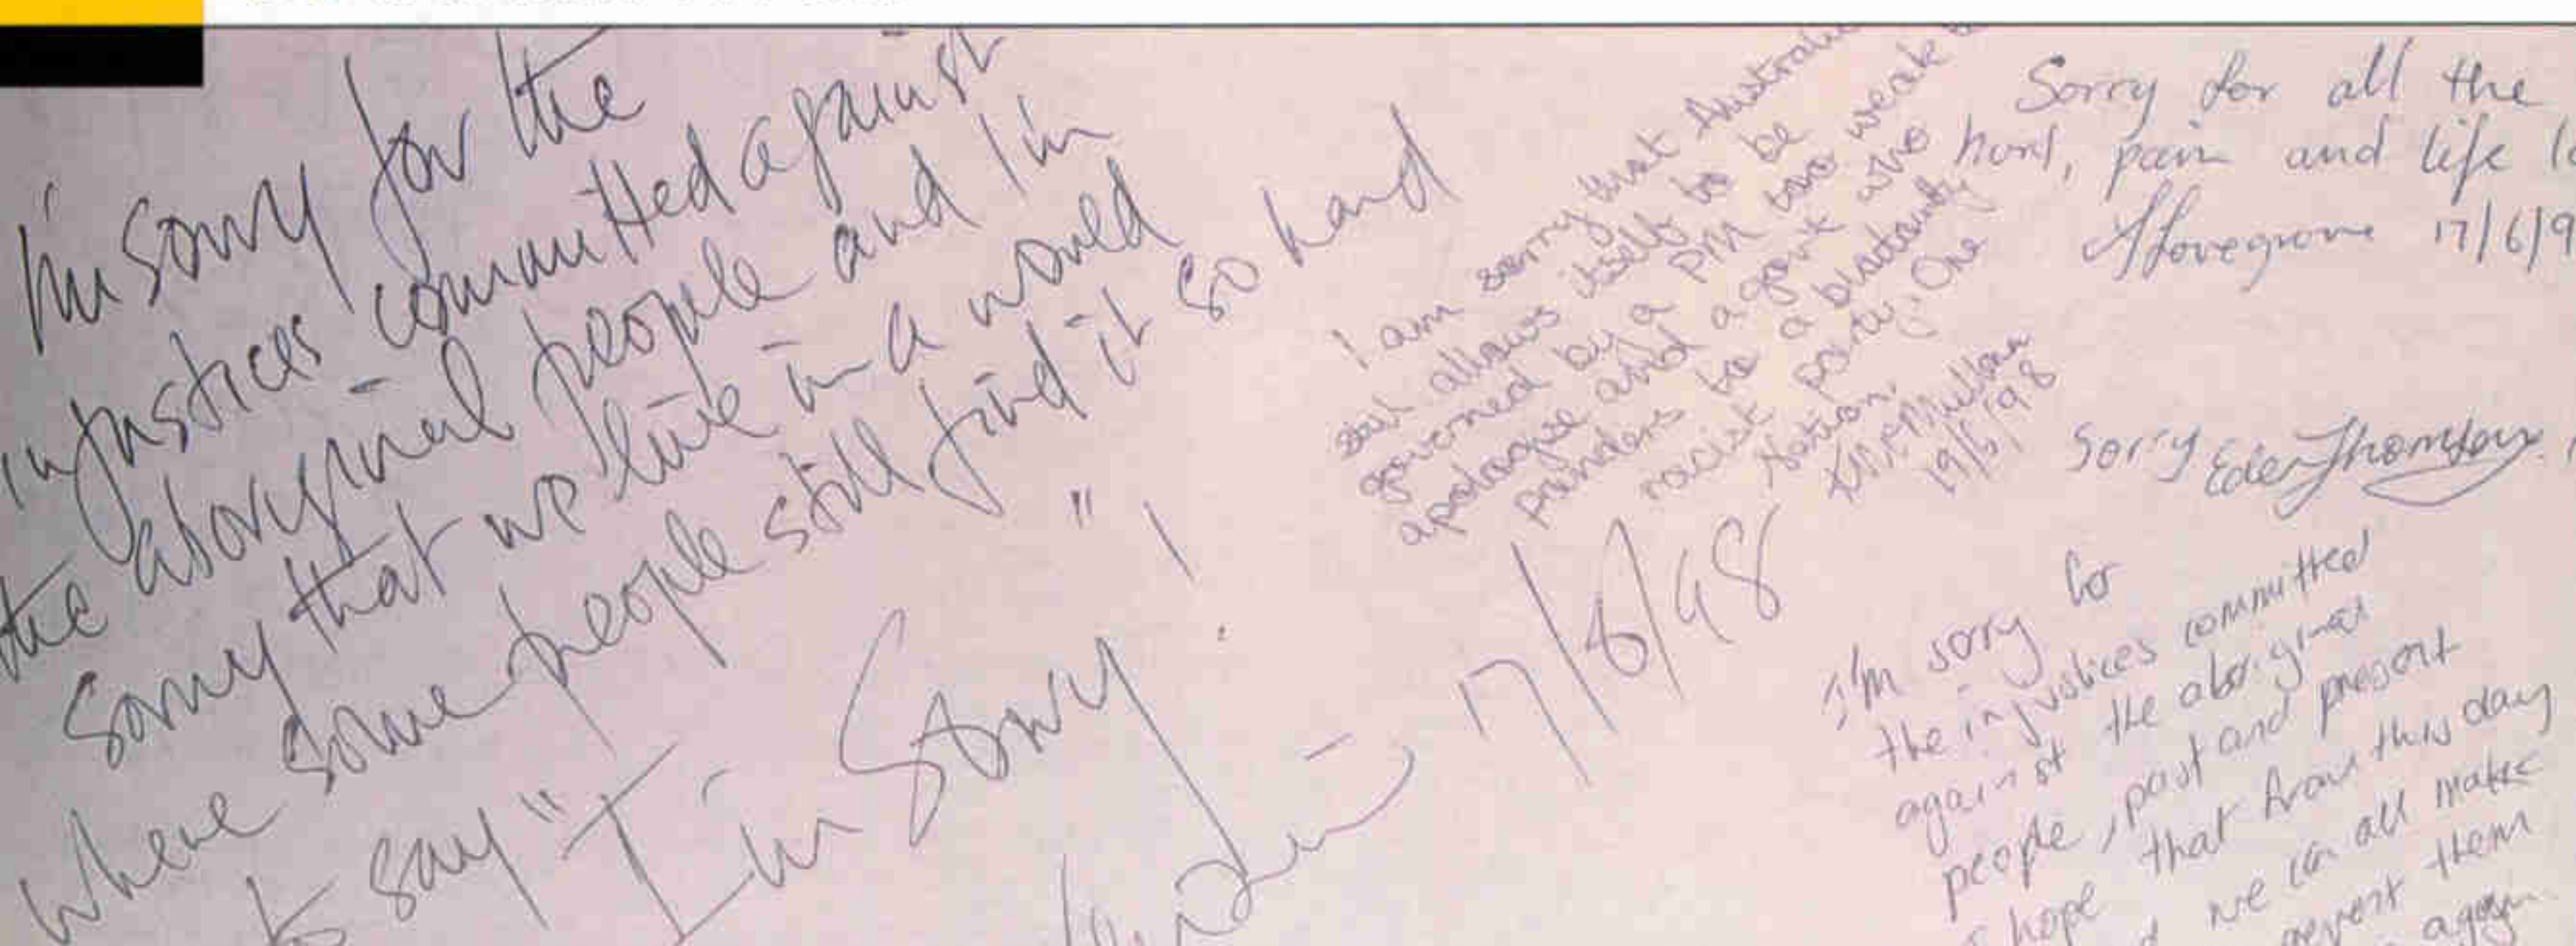 I'm sorry for the
injustices committed against
the aboriginal people and I'm
sorry that we live in a world
where some people still find it so hard
to say "I'm sorry"!
17/8/98
I am sorry that Australia
allows itself to be
governed by a PM too weak to
apologise and a govt who
panders to a blatantly
racist party: One
Nation.
19/6/98
Sorry for all the
hurt, pain and life
Hovegrove 17/6/9
Sorry Eden Thompson
I'm sorry for
the injustices committed
against the aboriginal
people, past and present
hope that from this day
we can all make
prevent them
again.